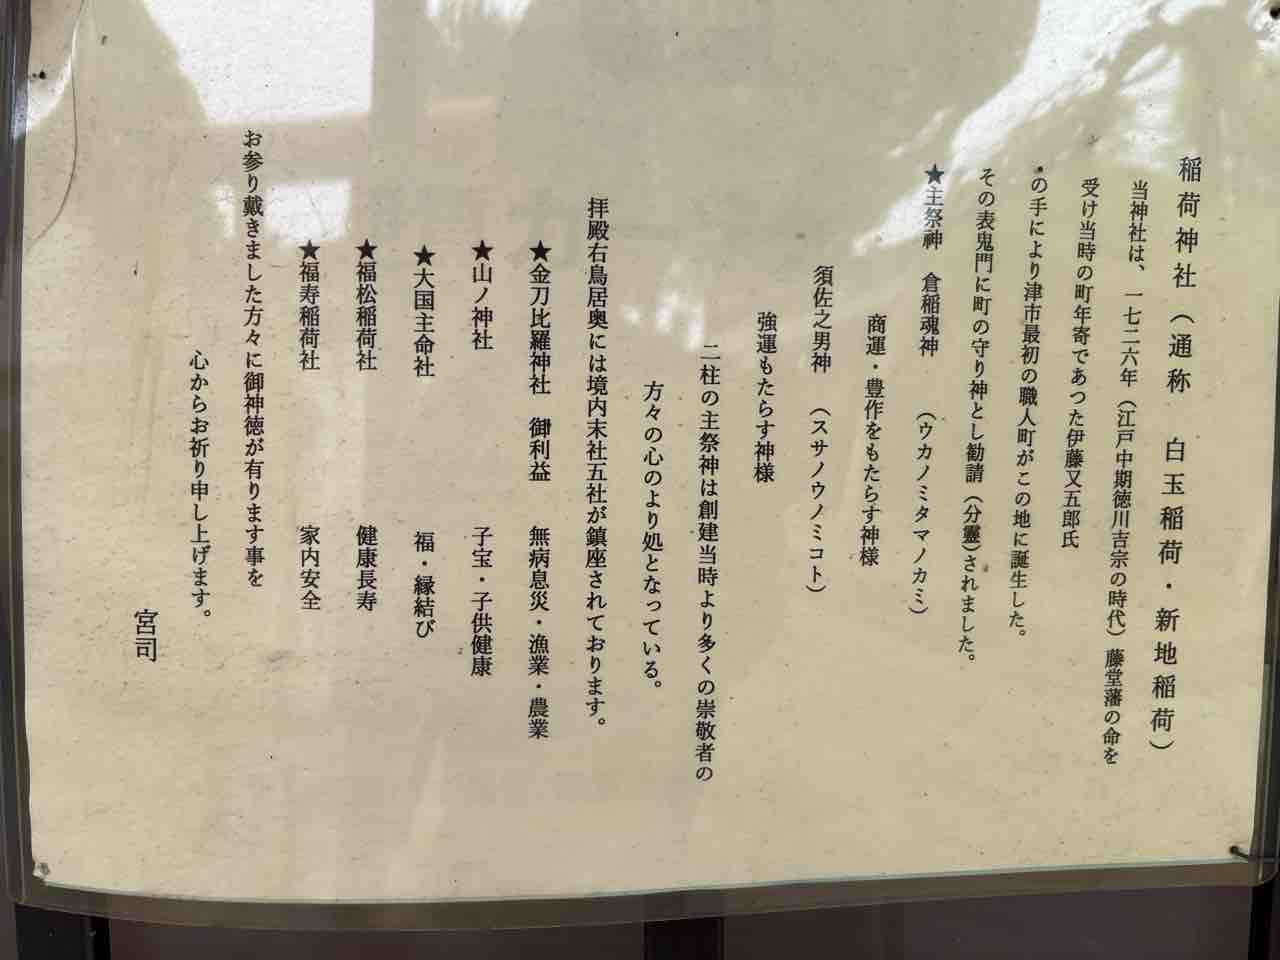 稲荷神社（通称　白玉稲荷・新地稲荷）
当神社は、一七二六年（江戸中期徳川吉宗の時代）藤堂藩の命を
受け当時の町年寄であつた伊藤又五郎氏
の手により津市最初の職人町がこの地に誕生した。
その表鬼門に町の守り神とし勧請（分靈）されました。
★主祭神　倉稲魂神　（ウカノミタマノカミ）
商運・豊作をもたらす神様
須佐之男神　（スサノウノミコト）
強運もたらす神様
二柱の主祭神は創建当時より多くの崇敬者の
方々の心のより処となっている。
拝殿右鳥居奥には境内末社五社が鎮座されております。
★金刀比羅神社　御利益　無病息災・漁業・農業
★山ノ神社　子宝・子供健康
★大国主命社　福・縁結び
★福松稲荷社　健康長寿
★福寿稲荷社　家内安全
お参り戴きました方々に御神徳が有ります事を
心からお祈り申し上げます。
宮司